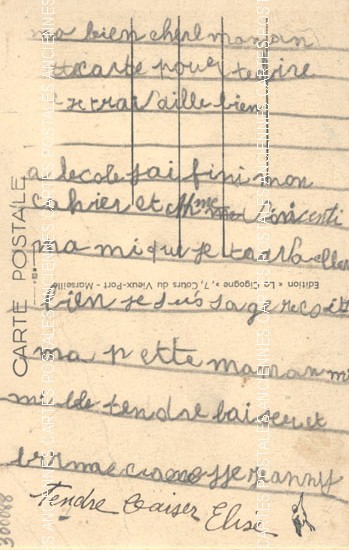 ma bien cherl maman
carte pour te dire
je travaille bien
a lecole jai fini mon
cahier et Mme
ma mi que je
bien je suis sage recoit
ma p ette maman mi
mi lle tendre baiser et
Tendre Baiser Elise
CARTE POSTALE
Edition « La Cigogne », 7, Cours du Vieux-Port - Marseille
300088
CARTES POSTALES ANCIENNES